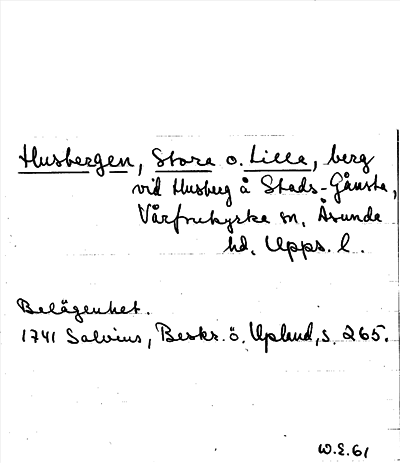 Husbergen, Stora o. Lilla, berg
vid Husberg å Stads-Gånsta,
Vårfrukyrka sn, Åsunda
hd, Upps. l.
Belägenhet.
1741 Salvius, Beskr. ö. Upland, s. 265.
W.E.61